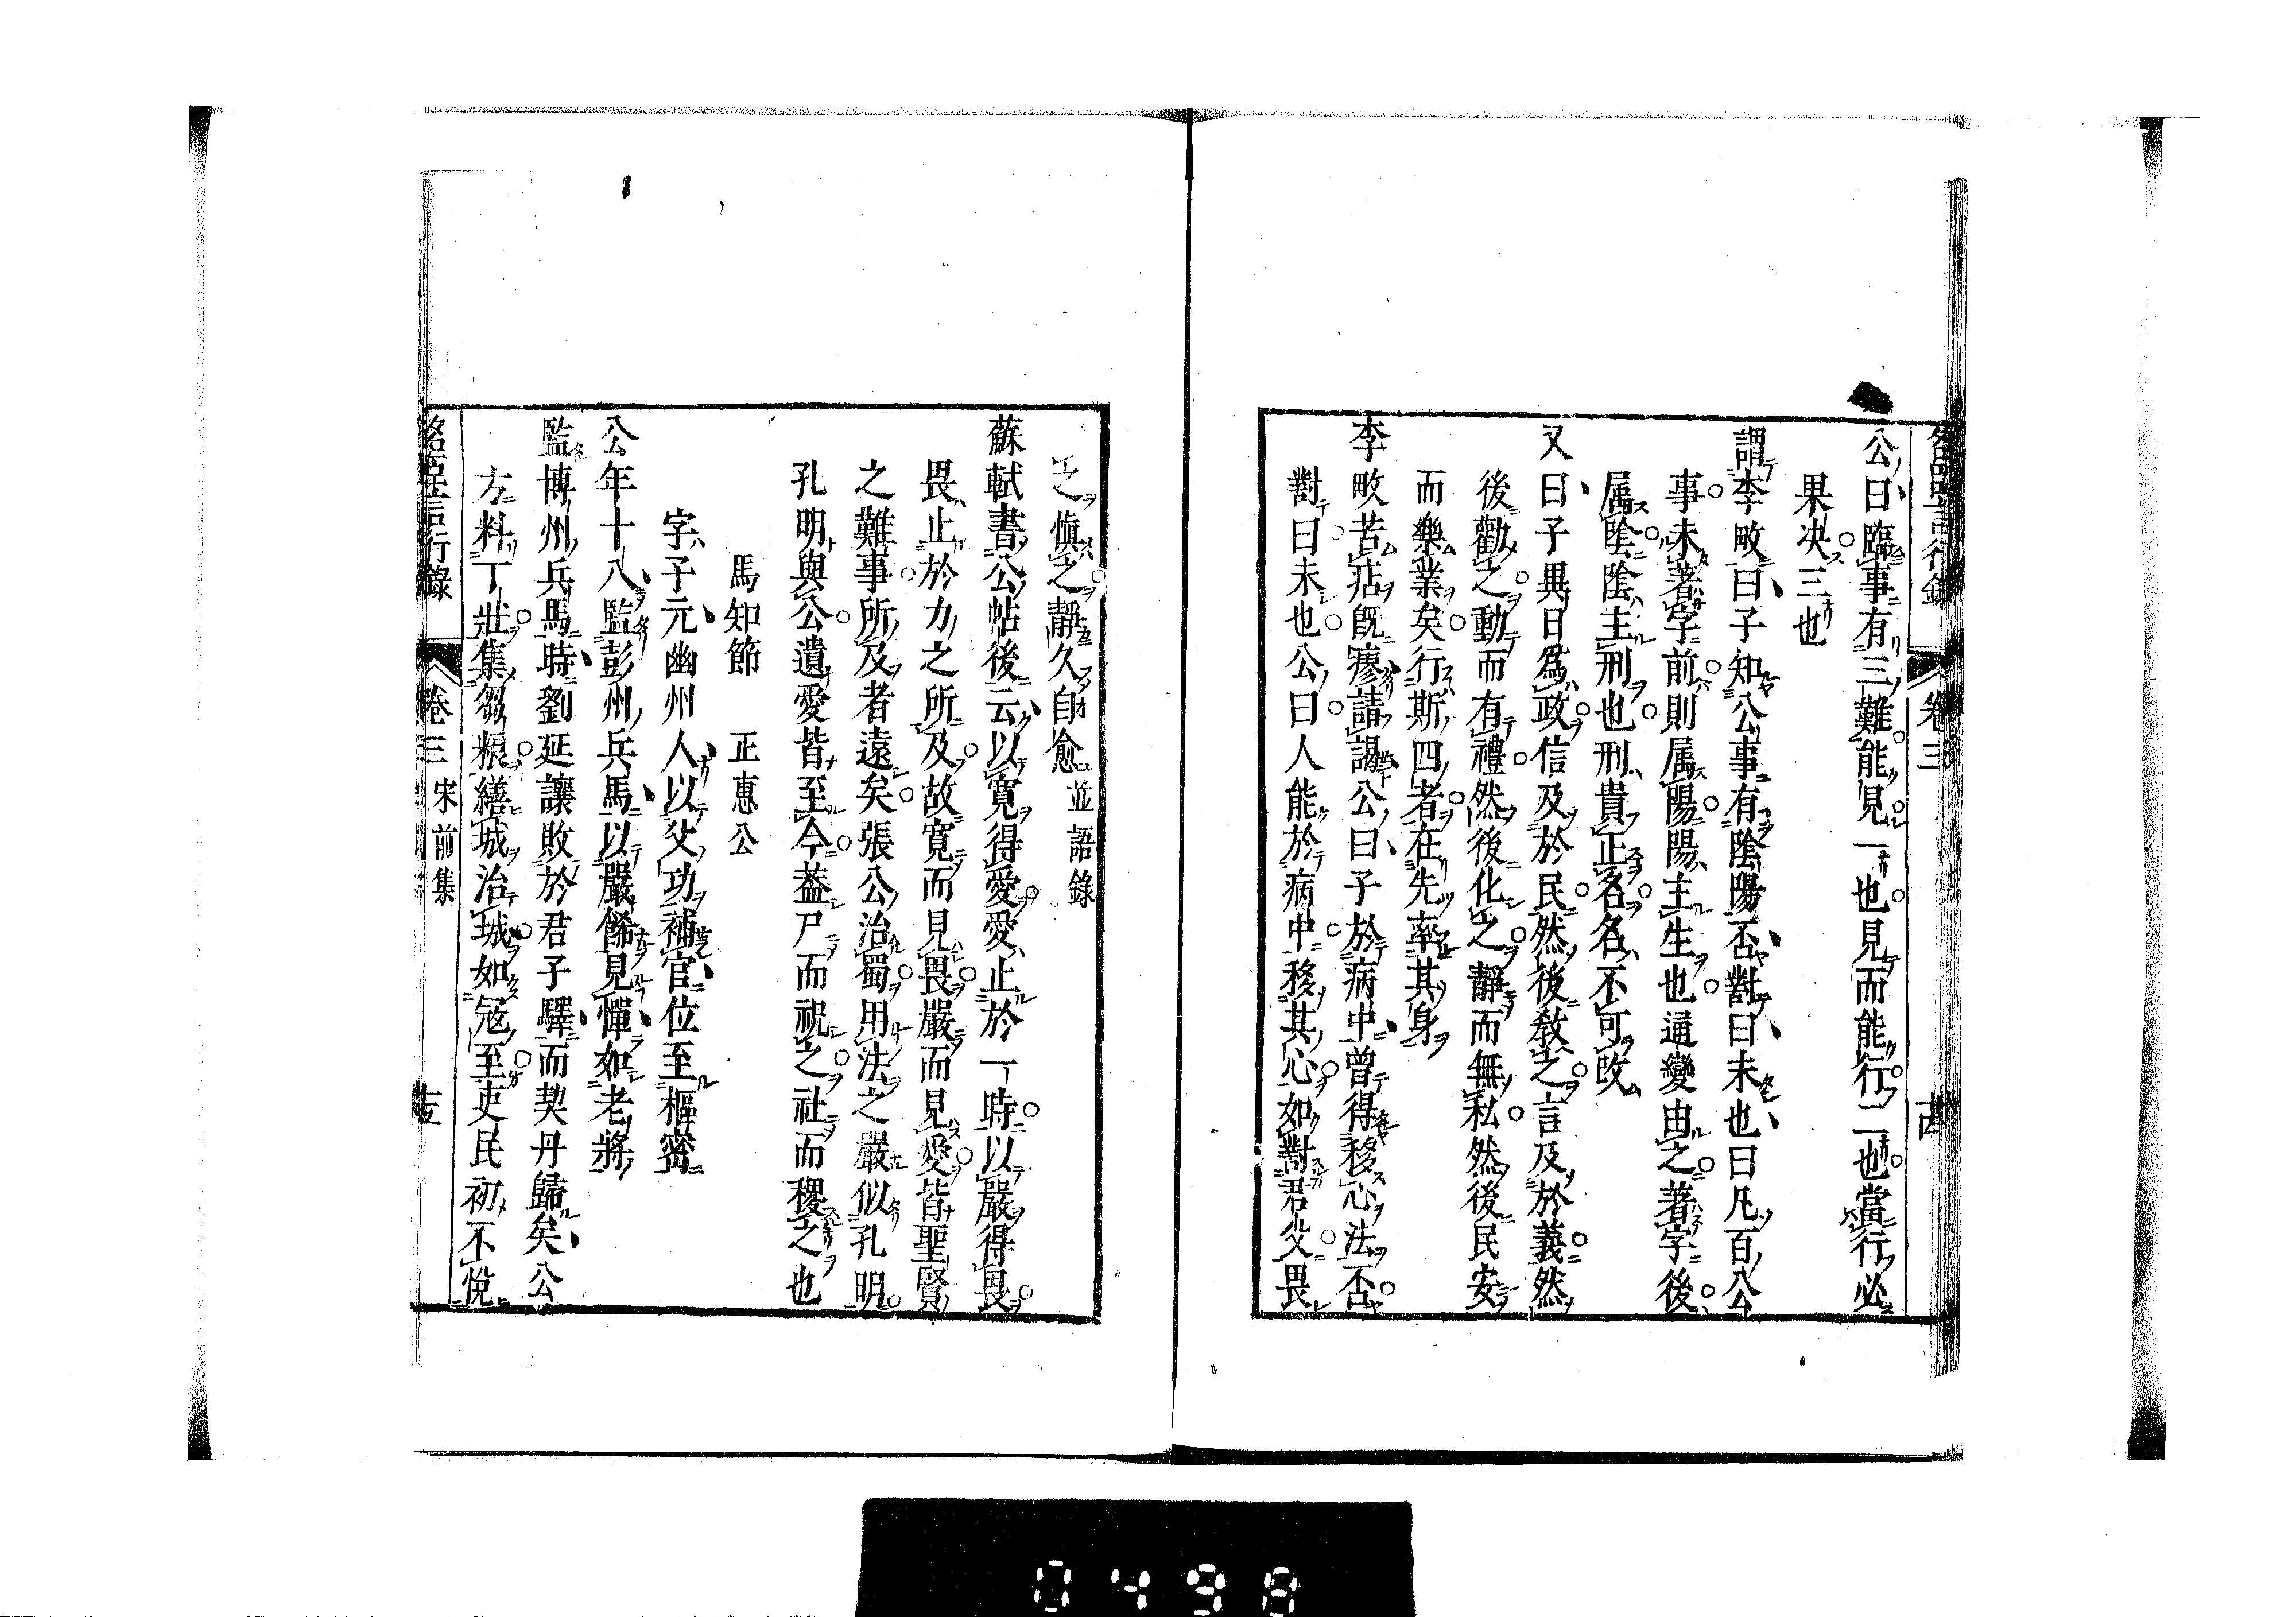 名臣言行錄
卷三
公曰臨事有三難能見一也見而能行二也當行必
果决三也
謂李畋曰子知公事有陰陽否對曰未也曰凡百公
事未著字前則属陽陽主生也通變由之著字後
属陰陰主刑也刑貴正名名不可改
又曰子異日為政信及於民然後教之言及於義然
後勸之動而有禮然後化之靜而無私然後民安
而樂業矣行斯四者在先率其身
李畋苦痁旣瘳請謁公曰子於病中曾得移心法否
對曰未也公曰人能於病中移其心如對君父畏
之慎之靜久自愈並語錄
蘇軾書公帖後云以寬得愛愛止於一時以嚴得畏
畏止於力之所及故寬而見畏嚴而見愛皆聖賢
之難事所及者遠矣張公治蜀用法之嚴似孔明
孔明與公遺愛皆至今葢尸而祝之社而稷之也
馬知節 正惠公
字子元幽州人以父功補官位至樞密
公年十八監彭州兵馬以嚴餙見憚如老將
監博州兵馬時劉延讓敗於君子驛而契丹歸矣公
方料丁壯集芻粮繕城治城如寇至吏民初不悅
名臣言行錄
卷三 宋前集